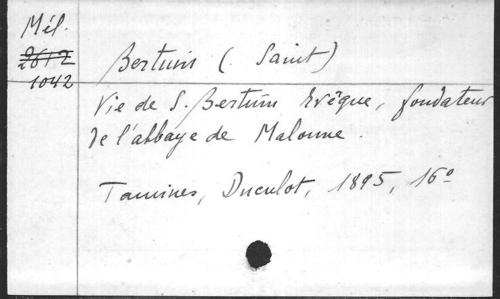 Mél.
2612
1042
Bertuin (Saint)
Vie de S. Bertuin Evêque, fondateur
de l'abbaye de Malonne.
Tamines, Duculot, 1895, 16º